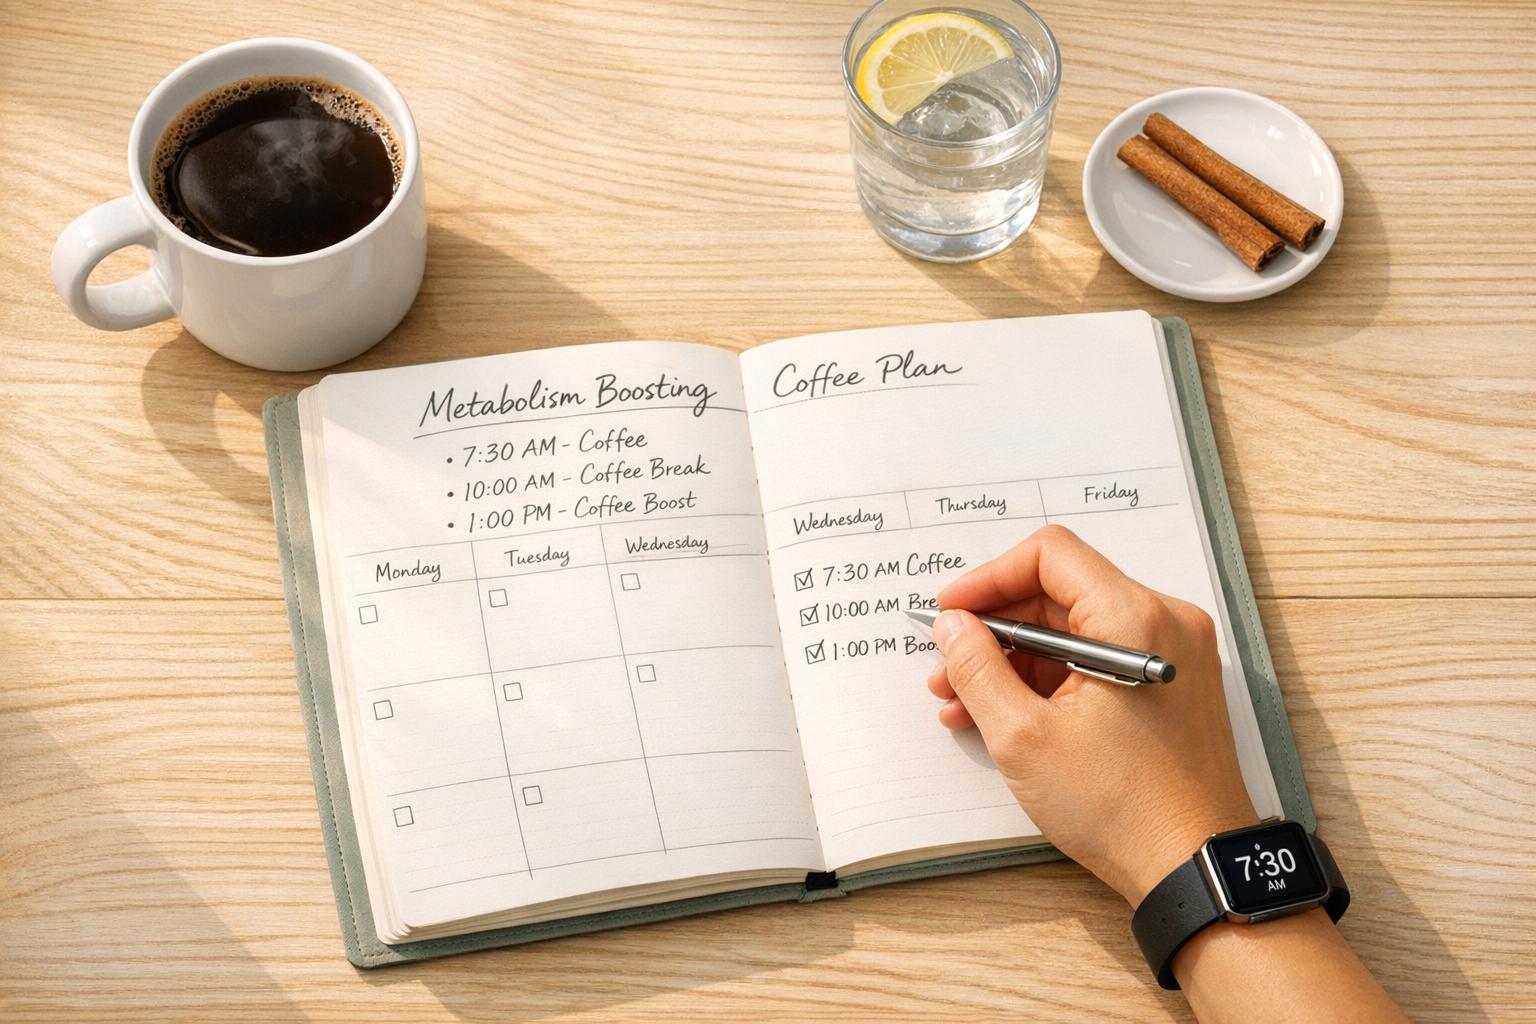 Metabolism Boosting
• 7:30 AM - Coffee
• 10:00 AM - Coffee Break
• 1:00 PM - Coffee Boost
Monday Tuesday Wednesday
Coffee Plan
Wednesday Thursday Friday
7:30 AM Coffee
10:00 AM
1:00 PM
7:30
AM